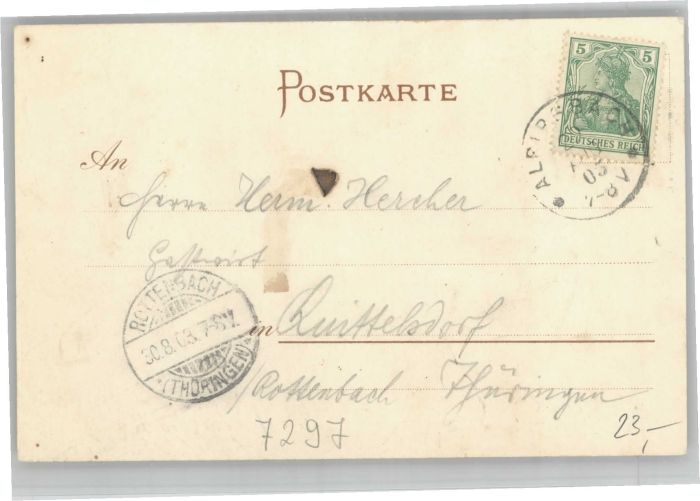 POSTKARTE
5 5
DEUTSCHES REICH
03
7-8 V
An
Herrn Herm. Hercher
Gastwirt
ROTTENBACH
30.8.03. 7-8V.
(THÜRINGEN)
in Quittelsdorf
/Rottenbach Thüringen
7297
23,-